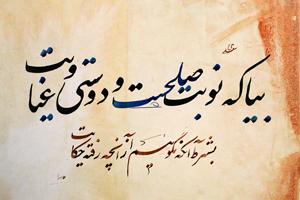 بیا که نوبت صلحست و دوستی و عنایت
بشرط آنکه نگوییم از آنچه رفت حکایت